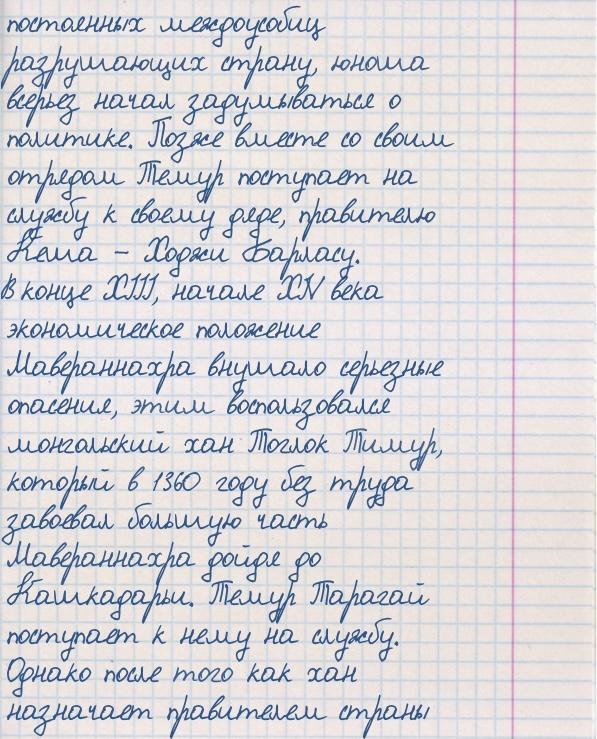 постоенных междоусобиц
разрушающих страну, юноша
всерьез начал задумываться о
политике. Позже вместе со своим
отрядом Темур поступает на
службу к своему дяде, правителю
Кеша – Ходжи Барласу.
В конце XIII, начале XIV века
экономическое положение
Мавераннахра внушало серьезные
опасения, этим воспользовался
монгольский хан Тоглок Тимур,
который в 1360 году без труда
завоевал большую часть
Мавераннахра дойдя до
Кашкадарьи. Темур Тарагай
поступает к нему на службу.
Однако после того как хан
назначает правителем страны